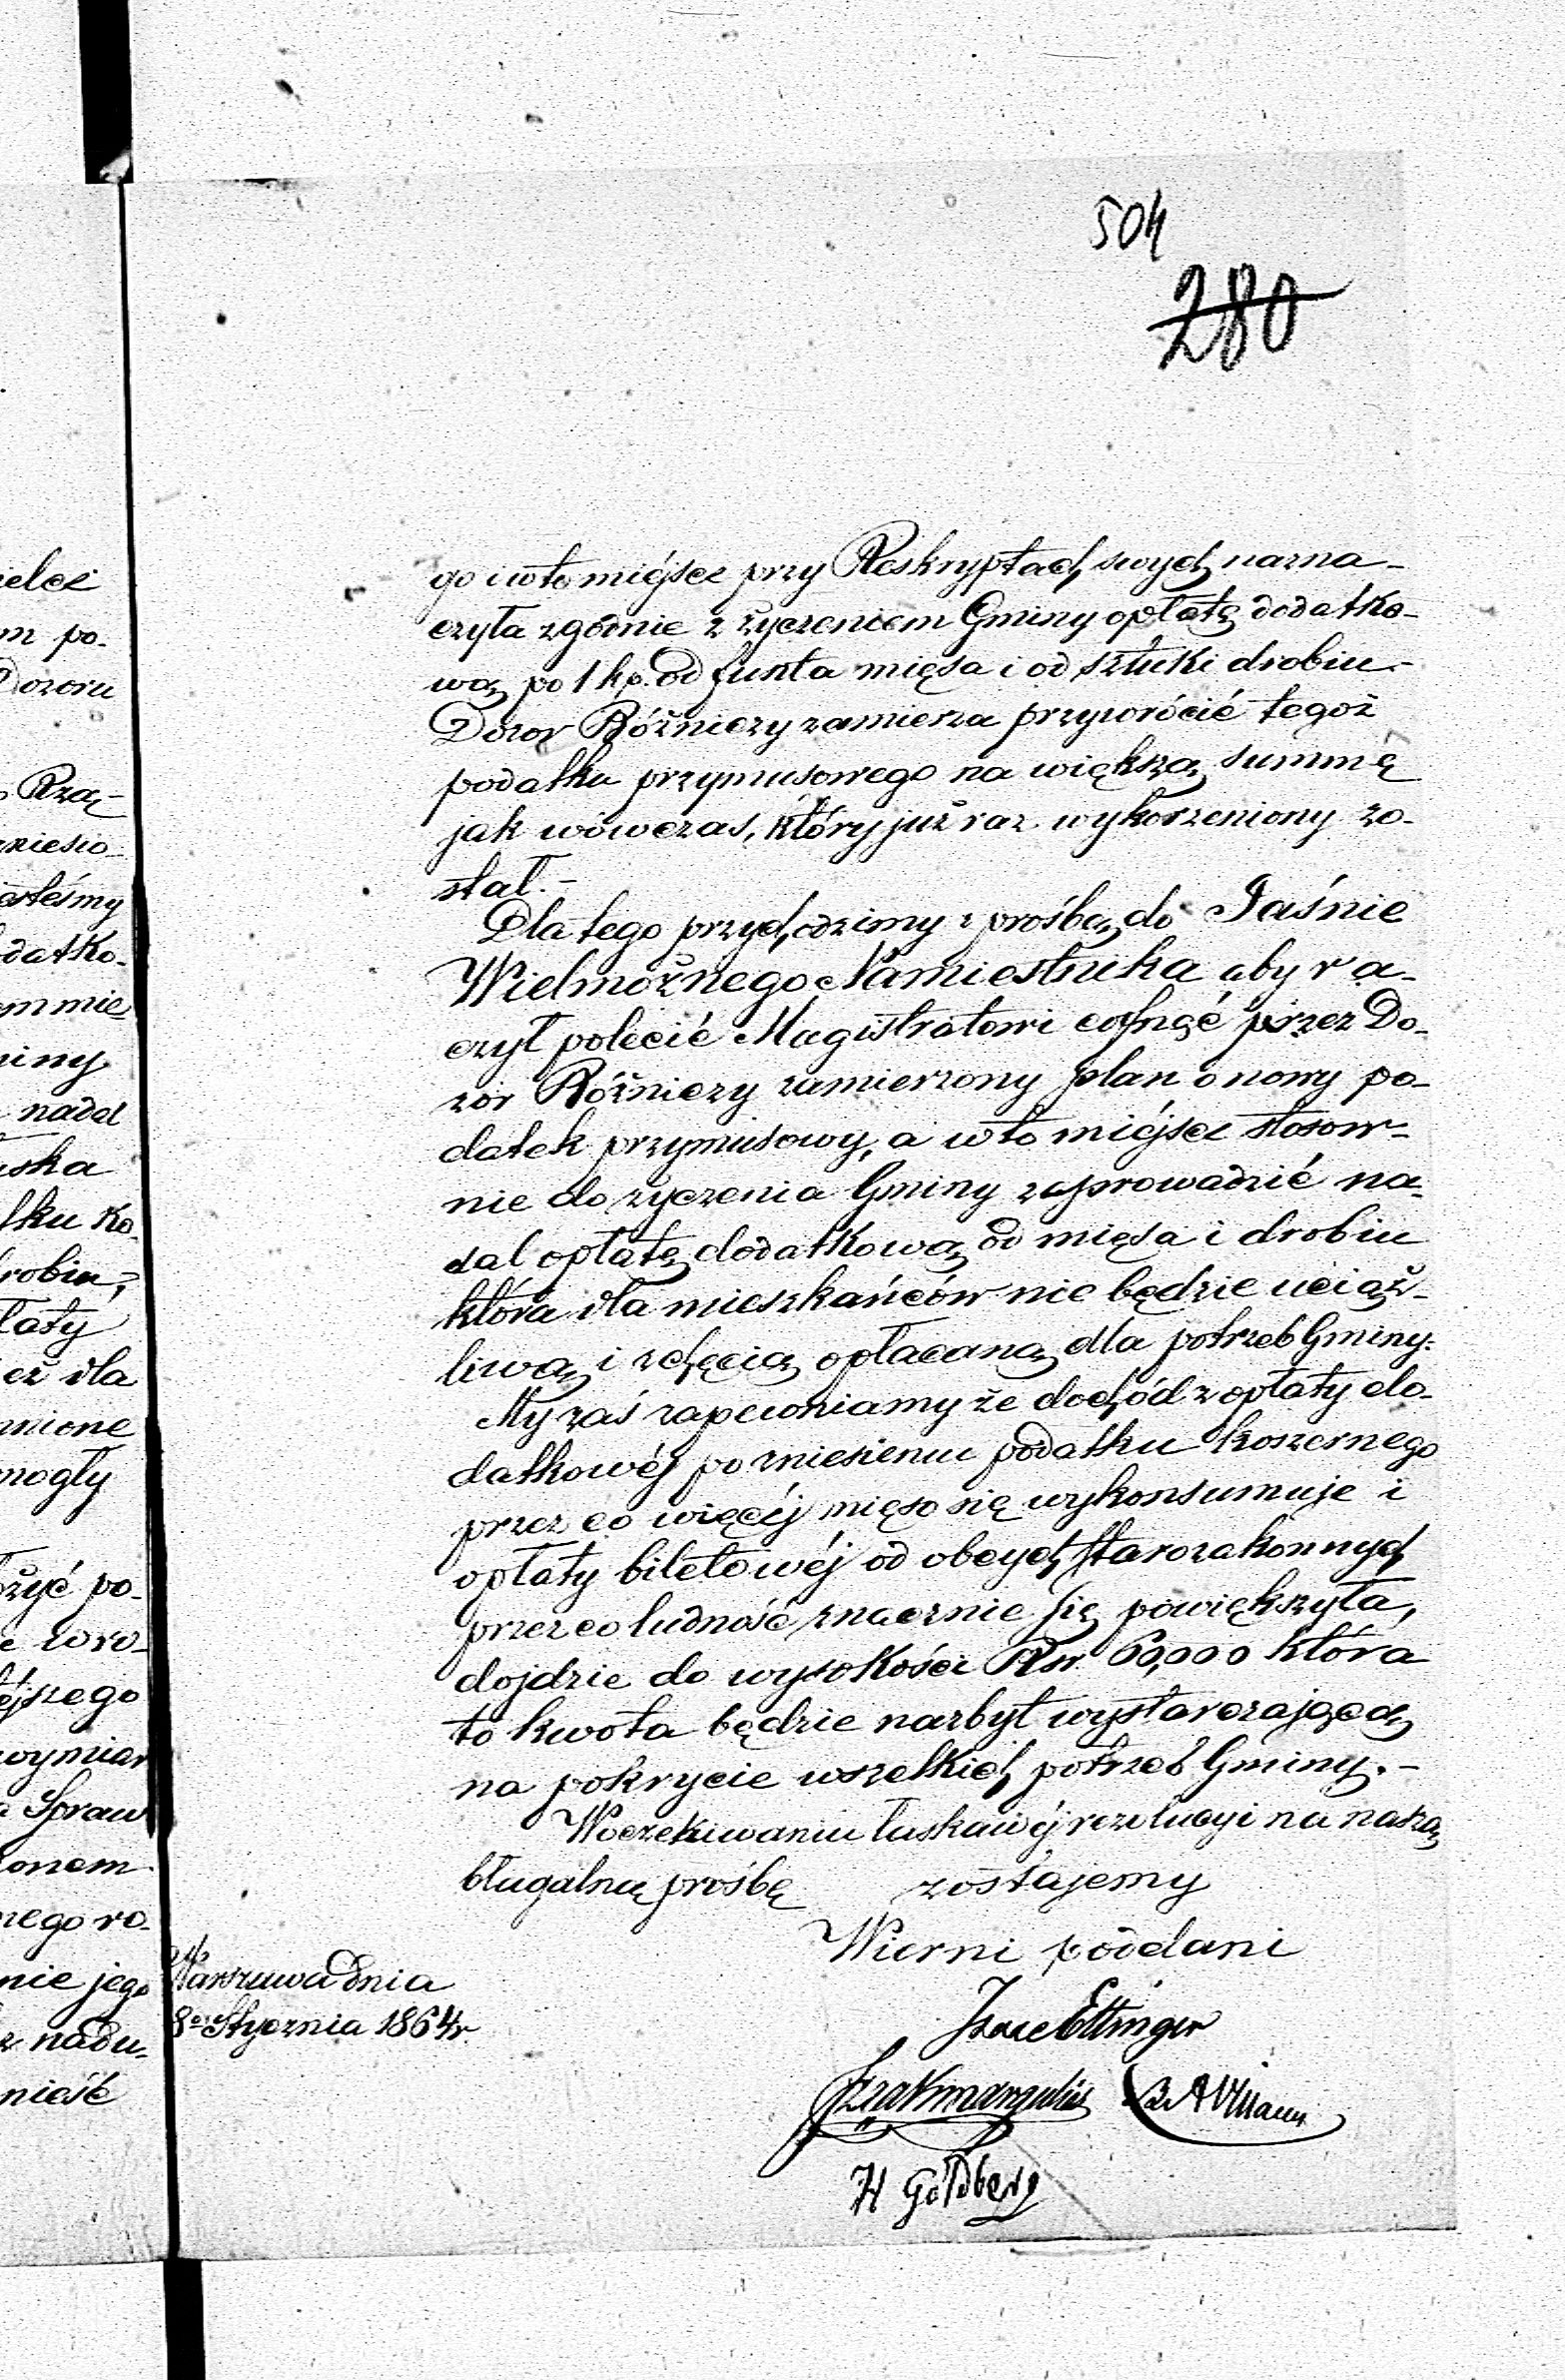 504
280
go i w to miéjsce przy Reskryptach swych nazna-
czyła zgodnie z życzeniem Gminy opłatę dodatko-
wą po 1 kp. od funta mięsa i od sztuki drobiu.-
Dozor Bóżniczy zamierza przywrócić tegoż
podatku przymusowego na większą summę
jak wówczas, który już raz wykorzeniony zo-
stał.-
Dla tego przychodzimy z prośbą do Jaśnie
Wielmożnego Namiestnika aby ra-
czył polecić Magistratowi cofnąć przez Do-
zór Bóżniczy zamierzony plan o nowy po-
datek przymusowy, a w to miéjsce stosow-
nie do życzenia Gminy zaprowadzić na-
dal opłatę dodatkową od mięsa i drobiu
która dla mieszkańców nie będzie uciąż-
liwą i z chęcią opłacaną dla potrzeb Gminy.
My zaś zapewniamy że dochód z opłaty do-
datkowéj po zniesieniu podatku koszernego
przez co więcéj mięso się wykonsumuje i
opłaty biletowéj od obcych starozakonnych
przez co ludność znacznie się powiększyła,
dojdzie do wysokości Rsr. 60,000 która
to kwota będzie nazbyt wystarczającą
na pokrycie wszelkich potrzeb Gminy.-
W oczekiwaniu łaskawéj rezolucyi na naszą
błagalną prośbę zostajemy
Wierni poddani
Warszawa dnia
8o Stycznia 1864 r.
Izaac Ettinger
Izrak Margulies
H Goldberg
ielce
m po-
Dozoru
Rzą-
zniesio-
esteśmy
odatko-
em mie-
miny
nadal
uska
tku ko-
drobiu,
łaty
cż dla
mnione
mogły
ożyć po-
zwro-
ejszego
wymiar
Spraw
zonem
nego ro-
nie jego
nadu-
nieść